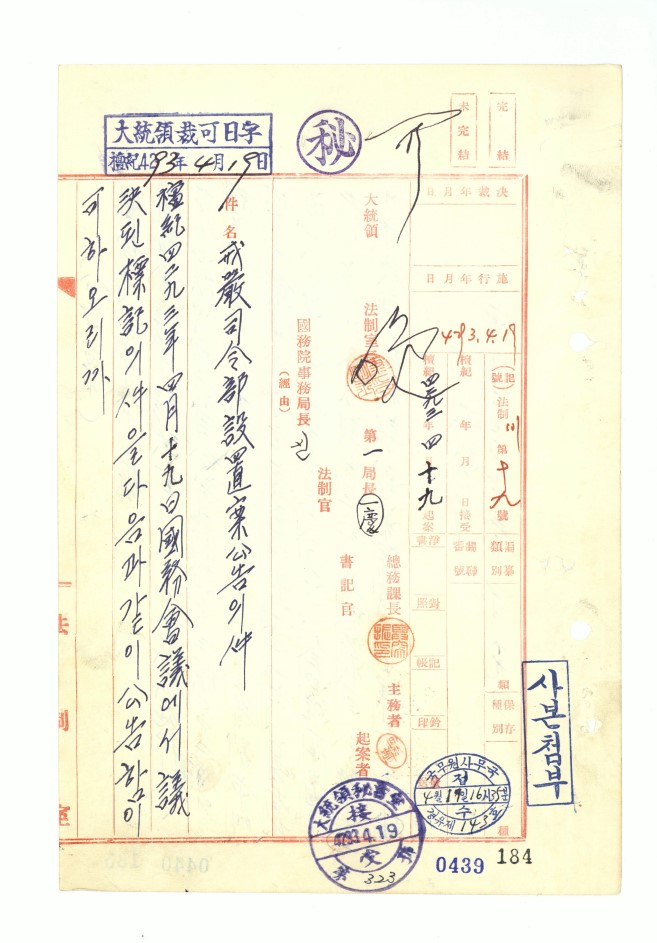 完結
未完結
決裁 年 月 日
施行 年 月 日
4293.4.19
(記號) 法制 第 十九 號
檀紀 年 月 日 接受
檀紀 四二九三年 四 十九 起案
類別
番號
淨書
對照
記帳
鈐印
保存
種別
大統領
法制室
第一局長
總務課長
主務者
起案者
國務院事務局長
(經由)
法制官
書記官
秘
大統領裁可日字
檀紀4293年 4月 19日
件名 戒嚴司令部設置案公告의件
檀紀四二九三年 四月十九日國務會議에서 議
決된 標記의 件을 다음과 같이 公告함이
可하오리까
法制室
사본첨부
국무원사무국
접수
4월 19일 16시35분
大統領秘書室
接受
4293.4.19
第 323 號
0439
184